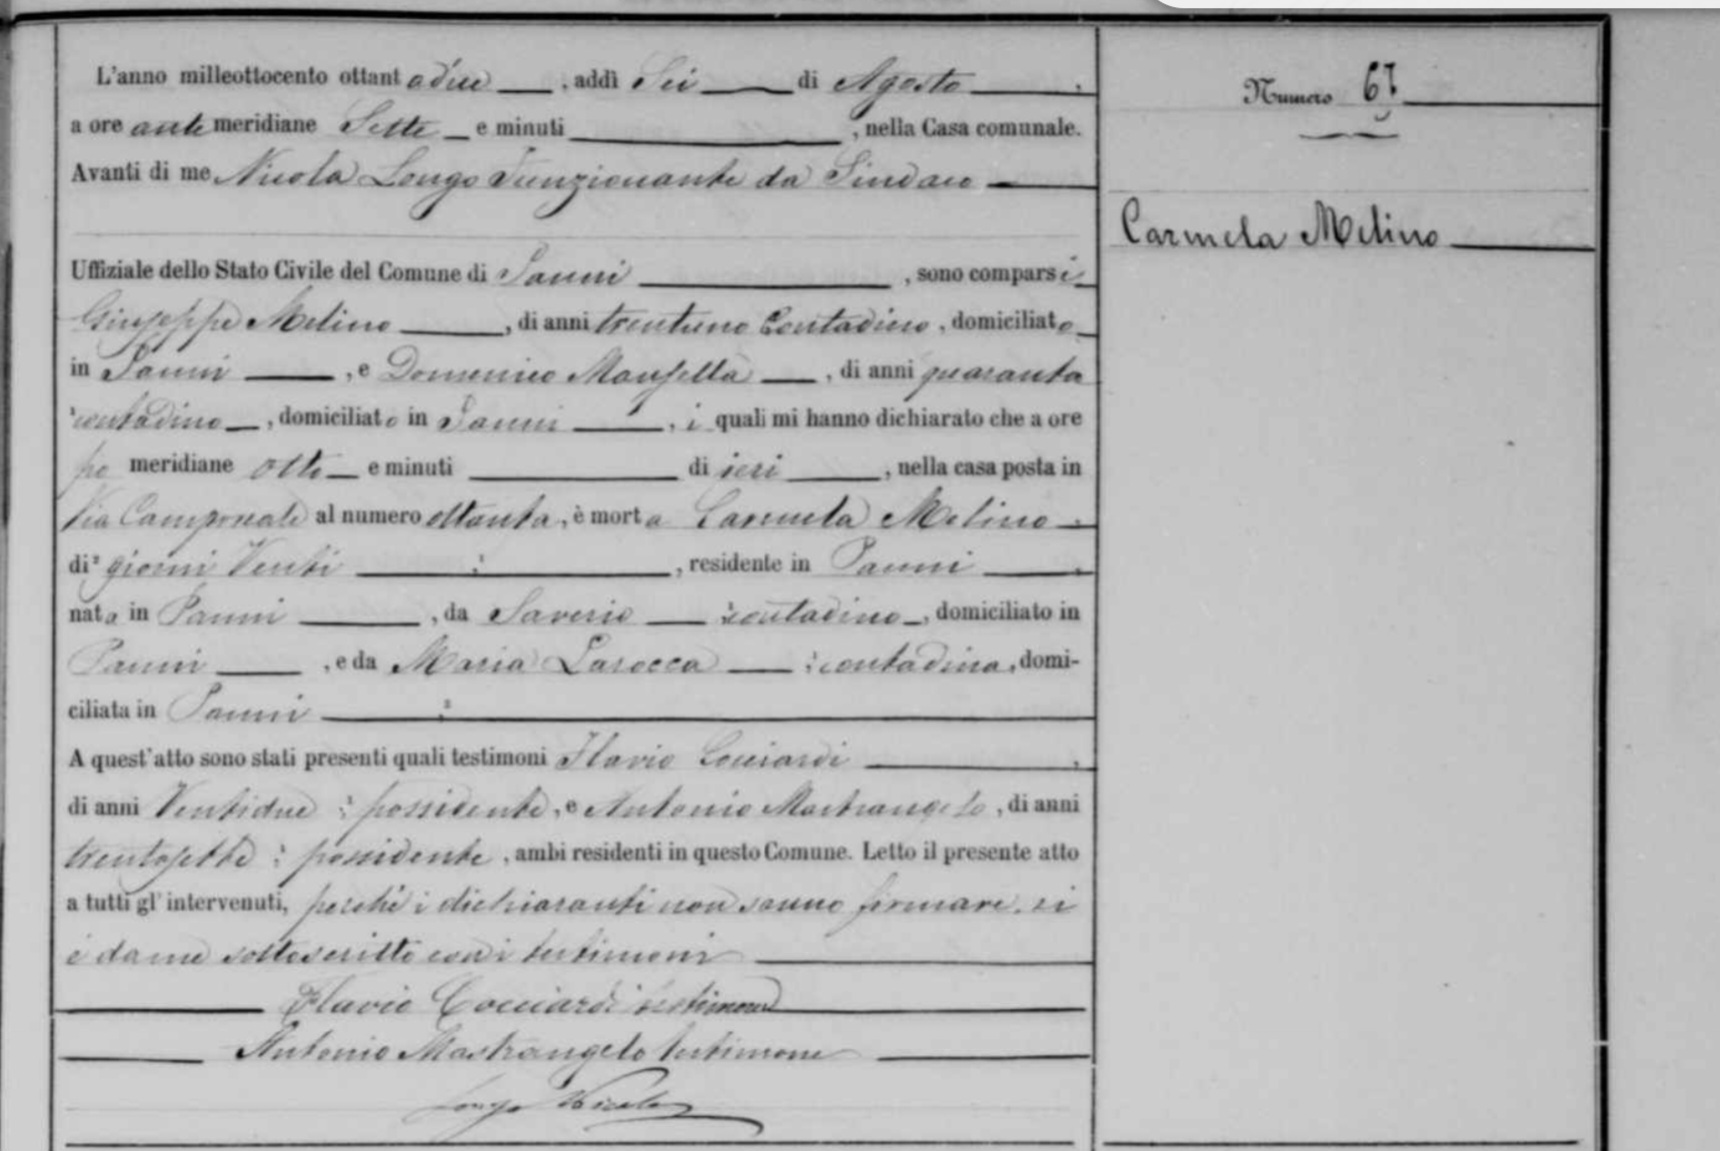 L'anno milleottocento ottantadue, addì Sei di Agosto,
a ore antemeridiane Sette e minuti, nella Casa comunale.
Avanti di me Nicola Longo Funzionante da Sindaco
Uffiziale dello Stato Civile del Comune di Panni, sono comparsi
Giuseppe Melino, di anni trentuno Contadino, domiciliato
in Panni, e Domenico Mansella, di anni quaranta
contadino, domiciliato in Panni, i quali mi hanno dichiarato che a ore
po meridiane otto e minuti di ieri, nella casa posta in
Via Camporeale al numero ottanta, è morta Carmela Melino
di giorni Venti, residente in Panni,
nata in Panni, da Saverio contadino, domiciliato in
Panni, e da Maria Larocca contadina, domi-
ciliata in Panni
A quest'atto sono stati presenti quali testimoni Flavio Cocciardi,
di anni Ventidue possidente, e Antonio Mastrangelo, di anni
trentasette possidente, ambi residenti in questo Comune. Letto il presente atto
a tutti gl'intervenuti, perché i dichiaranti non sanno firmare, si
è da me sottoscritto con i testimoni
Flavio Cocciardi testimone
Antonio Mastrangelo testimone
Longo Nicola
Numero 67
Carmela Melino